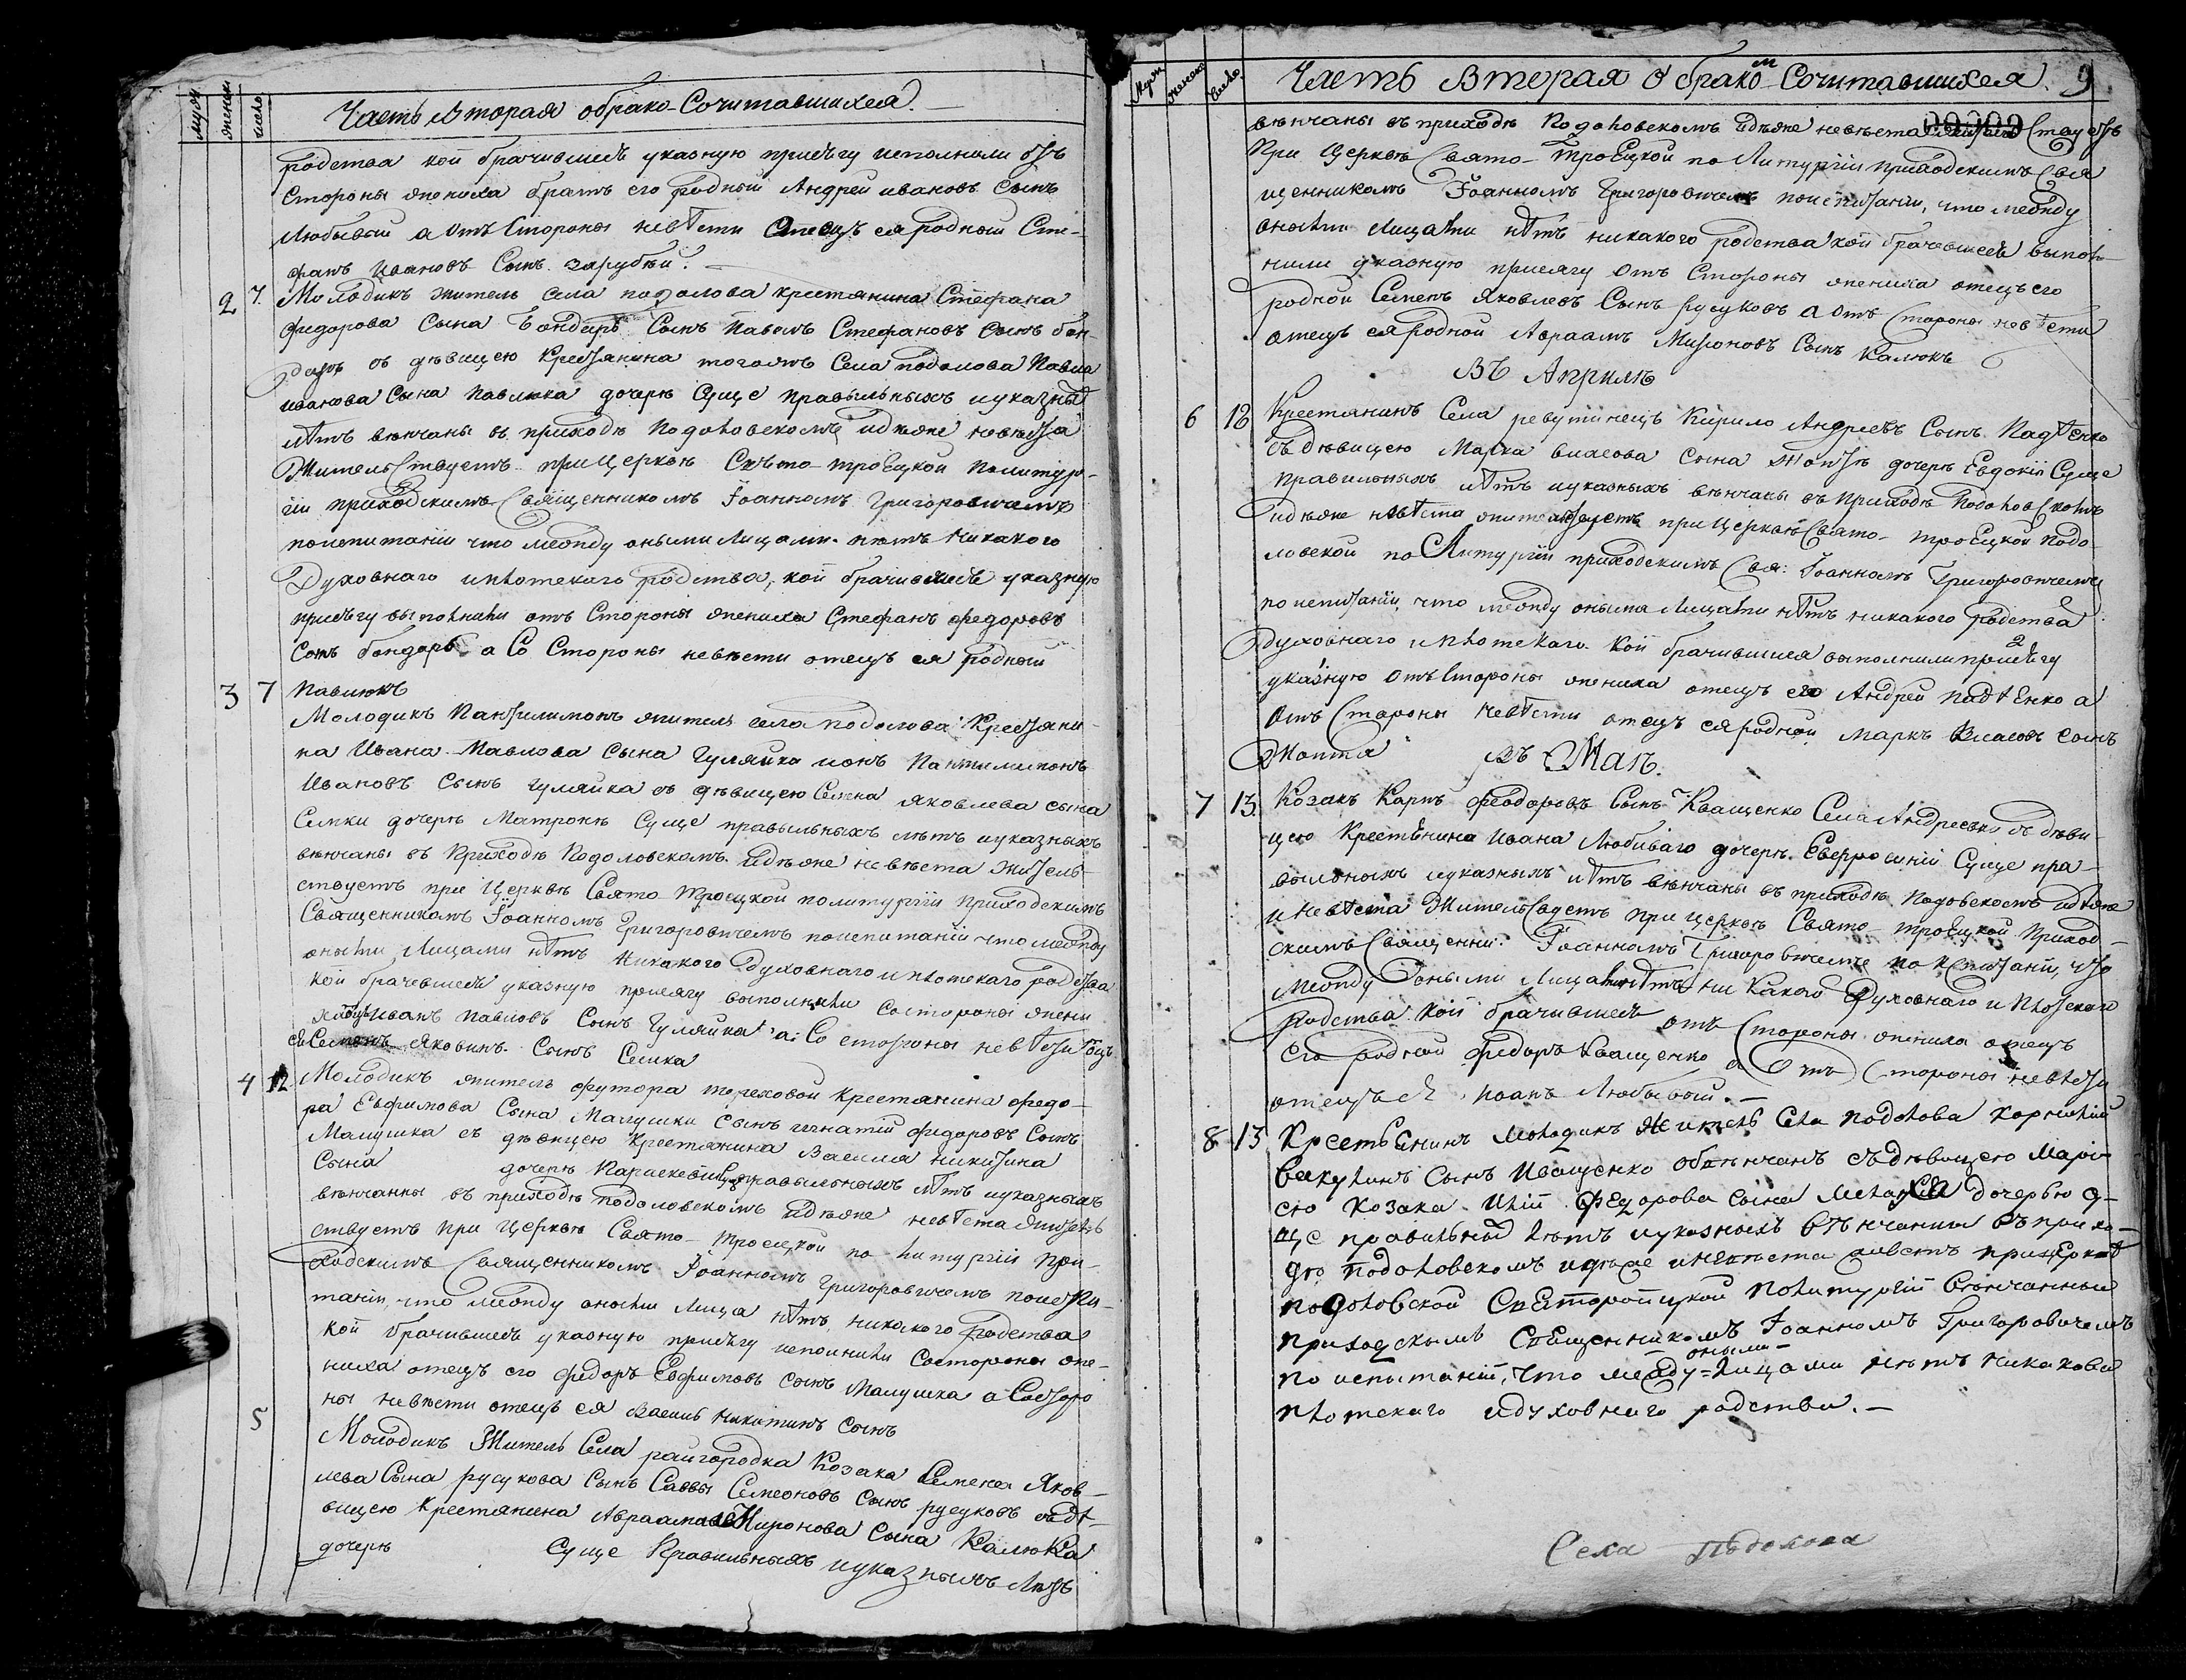 мужа женска число
Часть вторая о брако-Сочитавшихся.
родства кои брачившесь указную присягу исполнили отъ
Стороны жениха братъ его родный Андрей ивановъ Сынъ
Любывый а отъ Стороны невѣсти отецъ ея родный Сте-
фанъ ивановъ Сынъ Зарубей.
2 7. Молодикъ житель села подолова крестянина Стефана
Федорова Сына Бондаря Сынъ павелъ Стефановъ Сынъ бон-
дарь съ дѣвицею Крестянина тогожъ Села подолова Павла
иванова Сына павлюка дочерѣ Суще правыльныхъ иуказных
лѣтъ вѣнчаны въ приходѣ подоловскомъ идѣже невѣста
Жительствуетъ при Церквѣ Свято-троецкой политур-
гіи приходскимъ Священникомъ Іоанномъ Григоровичемъ
поиспитаніи что между оными Лицами нѣтъ никакого
Духовнаго иплотскаго родства, кои брачившесь указную
присягу выполнили отъ Стороны жениха Стефанъ федоровъ
Сынъ бондарь а Со Стороны невѣсти отецъ ея родный
павлюкъ
3 7 Молодикъ Пантилимонъ житель села подолова Крестяни-
на Ивана Павлова Сына Гуляйка ионъ Пантилимонъ
Ивановъ Сынъ гуляйка съ дѣвицею Семена яковлева сына
Семки дочерѣ Матронѣ Суще правыльныхъ лѣтъ иуказныхъ
вѣнчаны въ приходѣ подоловскомъ идѣже невѣста житель-
ствуетъ при Церквѣ Свято Троецкой политургіи приходскимъ
Священникомъ Іоанномъ Григоровичемъ поиспитаніи что между
оными Лицами нѣтъ никакого духовнаго иплотскаго родства
кои брачевшесь указную присягу выполнили Состороны жени
ха отцъ иванъ павловъ Сынъ Гуляйка а Со стороны невѣсти отцъ
ея Семенъ Яковинъ Сынъ Семка
4 12 Молодикъ житель футора тереховой крестянина федо-
ра Евфимова Сына Малушки Сынъ игнатій федоровъ Сынъ
Малушка съ дѣвицею Крестянина Василя никитина
Сына дочерѣ Параскевіи Суще правыльныхъ лѣтъ иуказныхъ
вѣнчанны въ приходѣ подоловскомъ идѣже невѣста жытель
ствуетъ при Церквѣ Свято-троецкой по литургіи при-
ходскимъ Священникомъ Іоанномъ Григоровичемъ поиспи-
таніи, что между оными Лица нѣтъ никакого родства
кои брачившесь указную присягу исполнили Состороны же-
ниха отецъ его федоръ Евфимовъ сынъ Малушка а Состоро
ны невѣсти отецъ ея василь никитинъ сынъ
5 Молодикъ Житель Села райгородка Козака Семена Яков-
лева Сына русукова Сынъ Саввы Семеоновъ Сынъ русуковъ здѣ-
вицею крестянина Авраама Миронова Сына Калюка
дочерѣ Суще Правильныхъ иуказныхъ Лѣтъ
Мужа женска число
Часть Вторая О брако м Сочитавшихся. 9.
00009
вѣнчаны въ приходѣ подоловскомъ идѣже невѣста Жительствуетъ
При Церквѣ Свято-троецкой по Литургіи приходскимъ Свя
щенникомъ Іоанномъ Григоровичемъ поиспитаніи, что между
оными Лицами нѣтъ никакого родства кои брачевшеся выпол-
нили указную присягу отъ Стороны жениха отецъ его
родной Семенъ Яковлевъ Сынъ русуковъ а отъ Стороны невѣсти
отецъ ея родной Авраамъ Мироновъ Сынъ Калюкъ
Въ Априлѣ
6 18 Крестянинъ Села ревутинецъ Кирило Андреевъ Сынъ Падѣенко
Съ дѣвицею Марка власова Сына жопѣ дочерѣ Евдокіи Суще
правильныхъ лѣтъ иуказныхъ вѣнчаны въ приходѣ подоловскомъ
идѣже невѣста жительствуетъ при Церквѣ Свято-троецкой подо-
ловской по Литургіи приходскимъ Свя: Іоанномъ Григоровичемъ
поиспитаніи, что между оными Лицами нѣтъ никакого родства
духовнаго иплотскаго. Кои брачившися выполнили присягу
указную отъ Стороны жениха отецъ его Андрей падѣенко а
отъ Стороны невѣсти отецъ ея родной Маркъ Власовъ сынъ
Жопта
Въ Маѣ.
7 13. Козакъ Карпъ Феодоровъ Сынъ Кващенко Села Андреевки съ дѣви-
цею Крестянина ивана Любиваго дочерѣ Евфросиніи Суще пра-
вильныхъ иуказныхъ лѣтъ вѣнчаны въ приходѣ подовскомъ идѣже
и невѣста Жительсвуетъ при церквѣ Свято-троецкой Приход-
скимъ Священни: Іоанномъ Григоровичемъ по испитаніи, что
Между оными Лицами нѣтъ ни Какого Духовнаго и плотскаго
Родства кои брачившесь отъ Стороны жениха отецъ
его родной федоръ Кващенко а Отъ Стороны невѣсти
отецъ ея иоанъ Любывый.
8 13 Крестьенинъ молодикъ житель села подолова корнилій
вакулинъ Сынъ иващенко обвѣнчанъ съдѣвицею Марі-
ею козака иліи Федорова сына дочерью су-
ще правильныхъ лѣтъ иуказныхъ вѣнчанны въ прихо-
дѣ подоловскомъ идѣже иневѣста живетъ прицерквѣ
подоловской Светоройцкой политургіи вѣнчанныи
приходскымъ Свещенникомъ Іоанномъ Григоровичемъ
по испытаніи, что между = оными лицами нѣтъ никакова
плотскаго идуховнаго родства.
Села Подолова